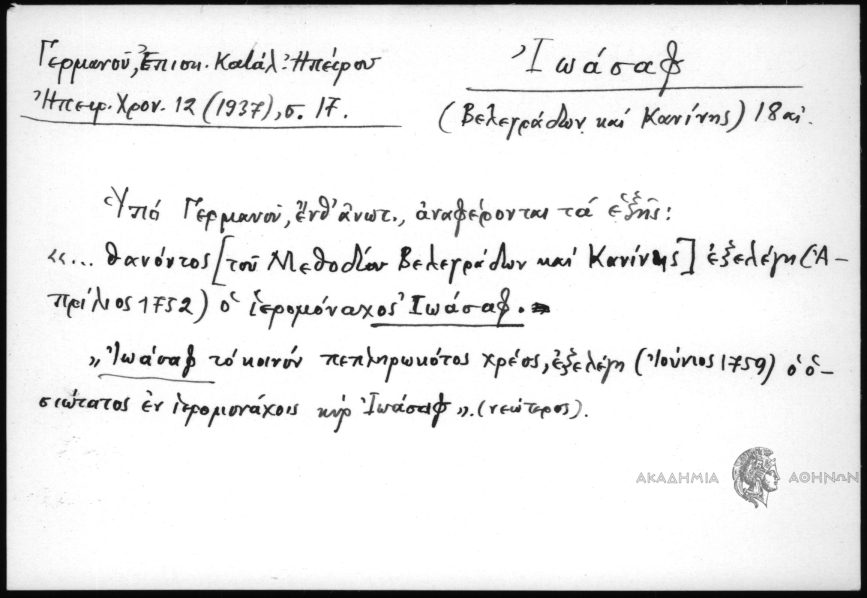 Γερμανοῦ, Ἐπισκ. Κατάλ. Ἠπείρου
Ἠπειρ. Χρον. 12 (1937), σ. 17.
Ἰωάσαφ
(Βελεγράδων καί Κανίνης) 18 αἰ.
Ὑπό Γερμανοῦ, ἔνθ' ἀνωτ., ἀναφέρονται τά ἑξῆς:
«... θανόντος [τοῦ Μεθοδίου Βελεγράδων καί Κανίνης] ἐξελέγη (Ἀ-
πρίλιος 1752) ὁ ἱερομόναχος Ἰωάσαφ.
"Ἰωάσαφ τό κοινόν πεπληρωκότος χρέος, ἐξελέγη (Ἰούνιος 1759) ὁ ὁ-
σιώτατος ἐν ἱερομονάχοις κύρ Ἰωάσαφ". (νεώτερος).
ΑΚΑΔΗΜΙΑ ΑΘΗΝΩΝ